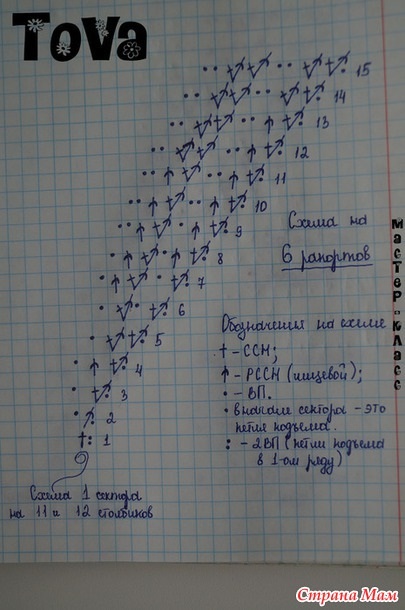 Tova
15
14
13
12
11
10
9
8
7
6
5
4
3
2
1
Схема на
6 рапортов
Обозначения на схеме
† - ССН;
↑ - РССН (лицевой);
• - ВП.
• вначале сектора - это
петля подъёма.
: - 2ВП (петли подъема
в 1-ом ряду)
Схема 1 сектора
на 11 и 12 столбиков
мастер-класс
Страна Мам